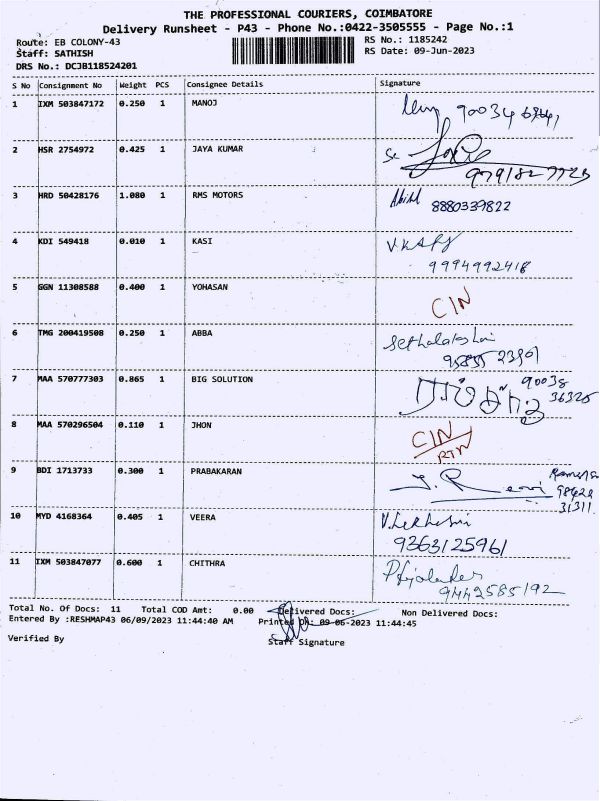 THE PROFESSIONAL COURIERS, COIMBATORE
Delivery Runsheet - P43 - Phone No.:0422-3505555 - Page No.:1
Route: EB COLONY-43 RS No.: 1185242
Staff: SATHISH RS Date: 09-Jun-2023
DRS No.: DCJB118524201
S No Consignment No Weight PCS Consignee Details Signature
1 IXM 503847172 0.250 1 MANOJ
2 HSR 2754972 0.425 1 JAYA KUMAR
3 HRD 50428176 1.080 1 RMS MOTORS
8880339822
4 KDI 549418 0.010 1 KASI
9994992418
5 GGN 11308588 0.400 1 YOHASAN CIN
6 TMG 200419508 0.250 1 ABBA
7 MAA 570777303 0.865 1 BIG SOLUTION 90038
36325
8 MAA 570296504 0.110 1 JHON CIN
RTN
9 BDI 1713733 0.300 1 PRABAKARAN
31311
10 MYD 4168364 0.405 1 VEERA
9363125961
11 IXM 503847077 0.600 1 CHITHRA
9442585192
Total No. Of Docs: 11 Total COD Amt: 0.00 Delivered Docs: Non Delivered Docs:
Entered By :RESHMAP43 06/09/2023 11:44:40 AM Printed On: 09-06-2023 11:44:45
Verified By Staff Signature